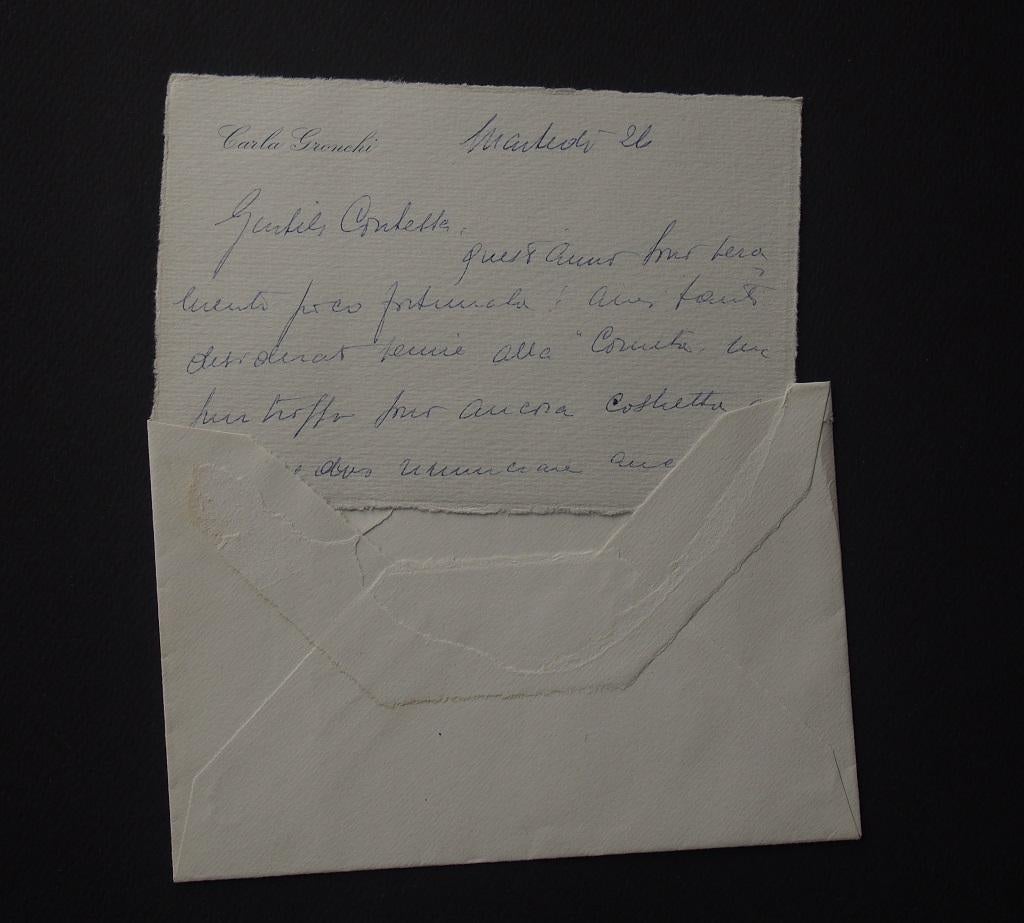 Carla Gronchi
Martedì 26
Gentile Contessa,
quest'anno sono vera
mente poco fortunata! Avrei tanto
desiderato venire alla "Cometa" ma
purtroppo sono ancora costretta
e devo rinunciare anc